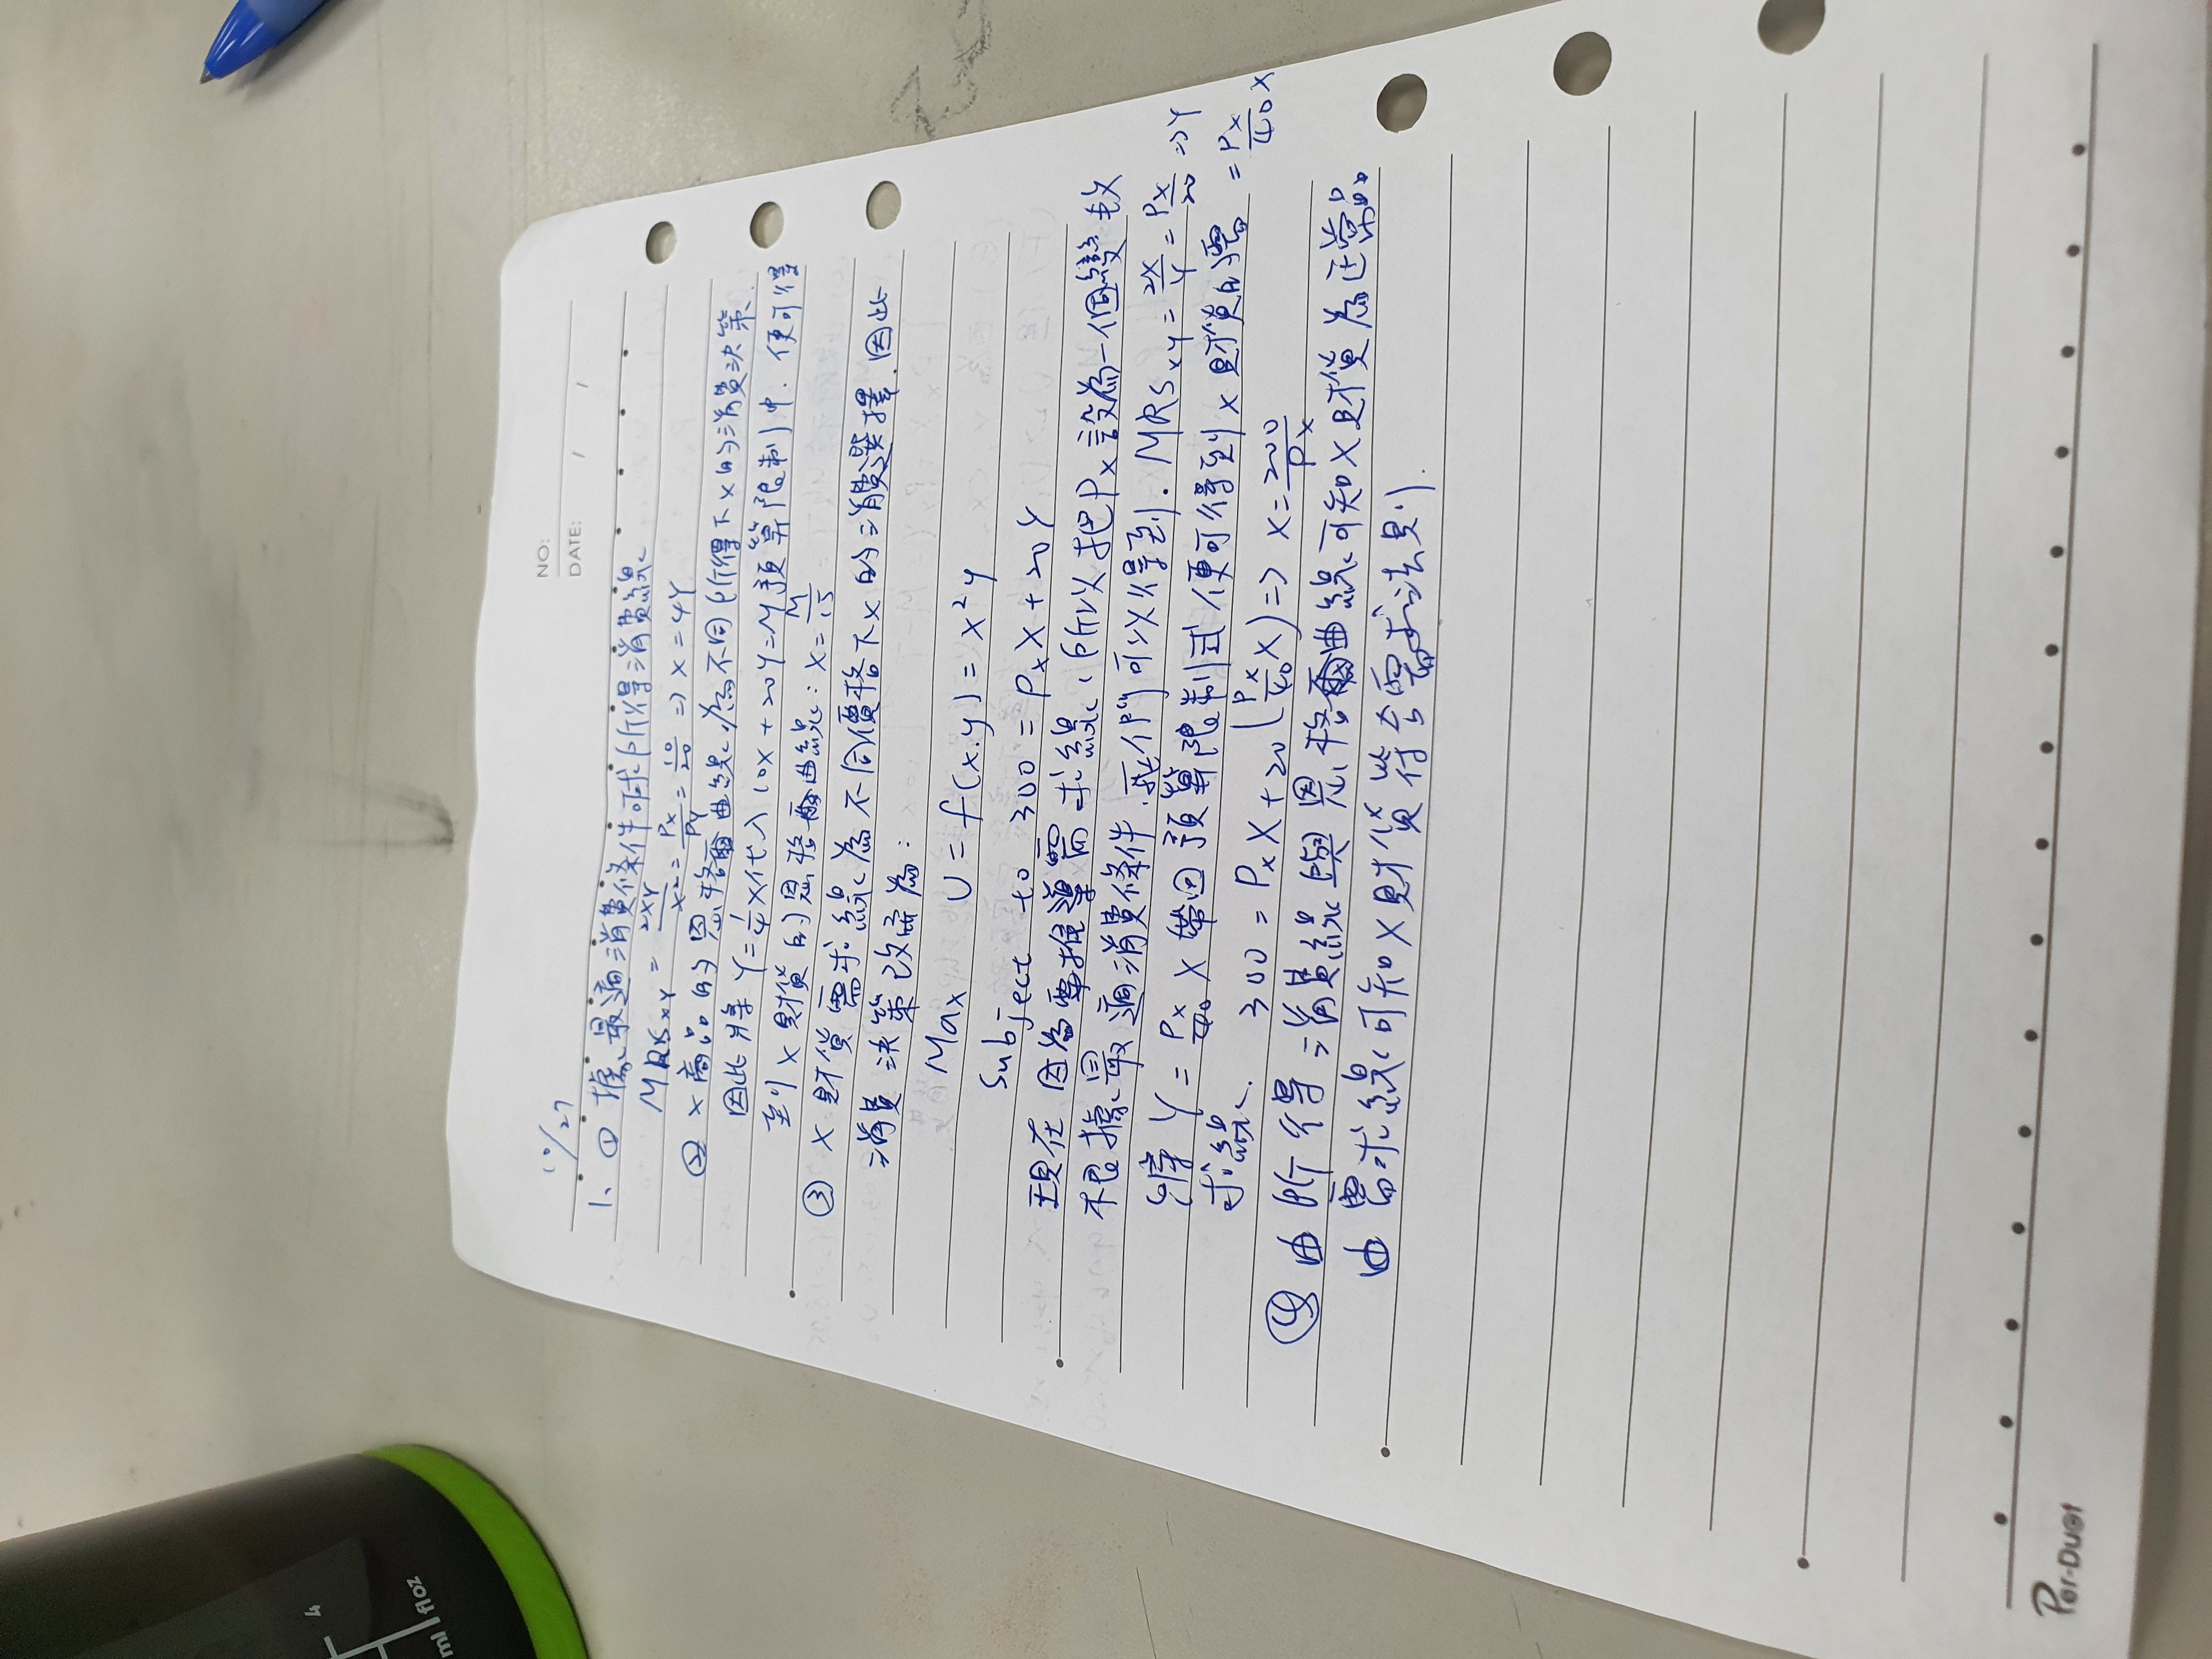 4
ml
fl oz
NO:
DATE: / /
10/27
1、① 據最適消費條件可求所得消費線
MRSxy = 2XY/X² = Px/Py = 10/20 => X = 4Y
② X商品的恩格爾曲線,為不同所得下X的消費決策.
因此將 Y=1/4X代入 10X+20Y=M預算限制中. 便可得
到X財貨的恩格爾曲線: X=M/15
③ X財貨需求線為不同價格下X的消費選擇.因此
消費決策改寫為:
Max U = f(x.y) = x²y
Subject to 300 = PxX+20Y
現在因為要推導需求線、所以把Px設為一個變數
根據最適消費條件.我們可以得到. MRSxy=2X/Y=Px/20 =>Y
= Px/40 X
將 Y = Px/40 X 帶回預算限制式便可得到X財貨的需
求線. 300 = PxX+20(Px/40X)=> X=200/Px
④ 由所得消費線與恩格爾曲線可知X財貨為正常品
由需求線可知X財貨符合需求法則.
Per-Duet